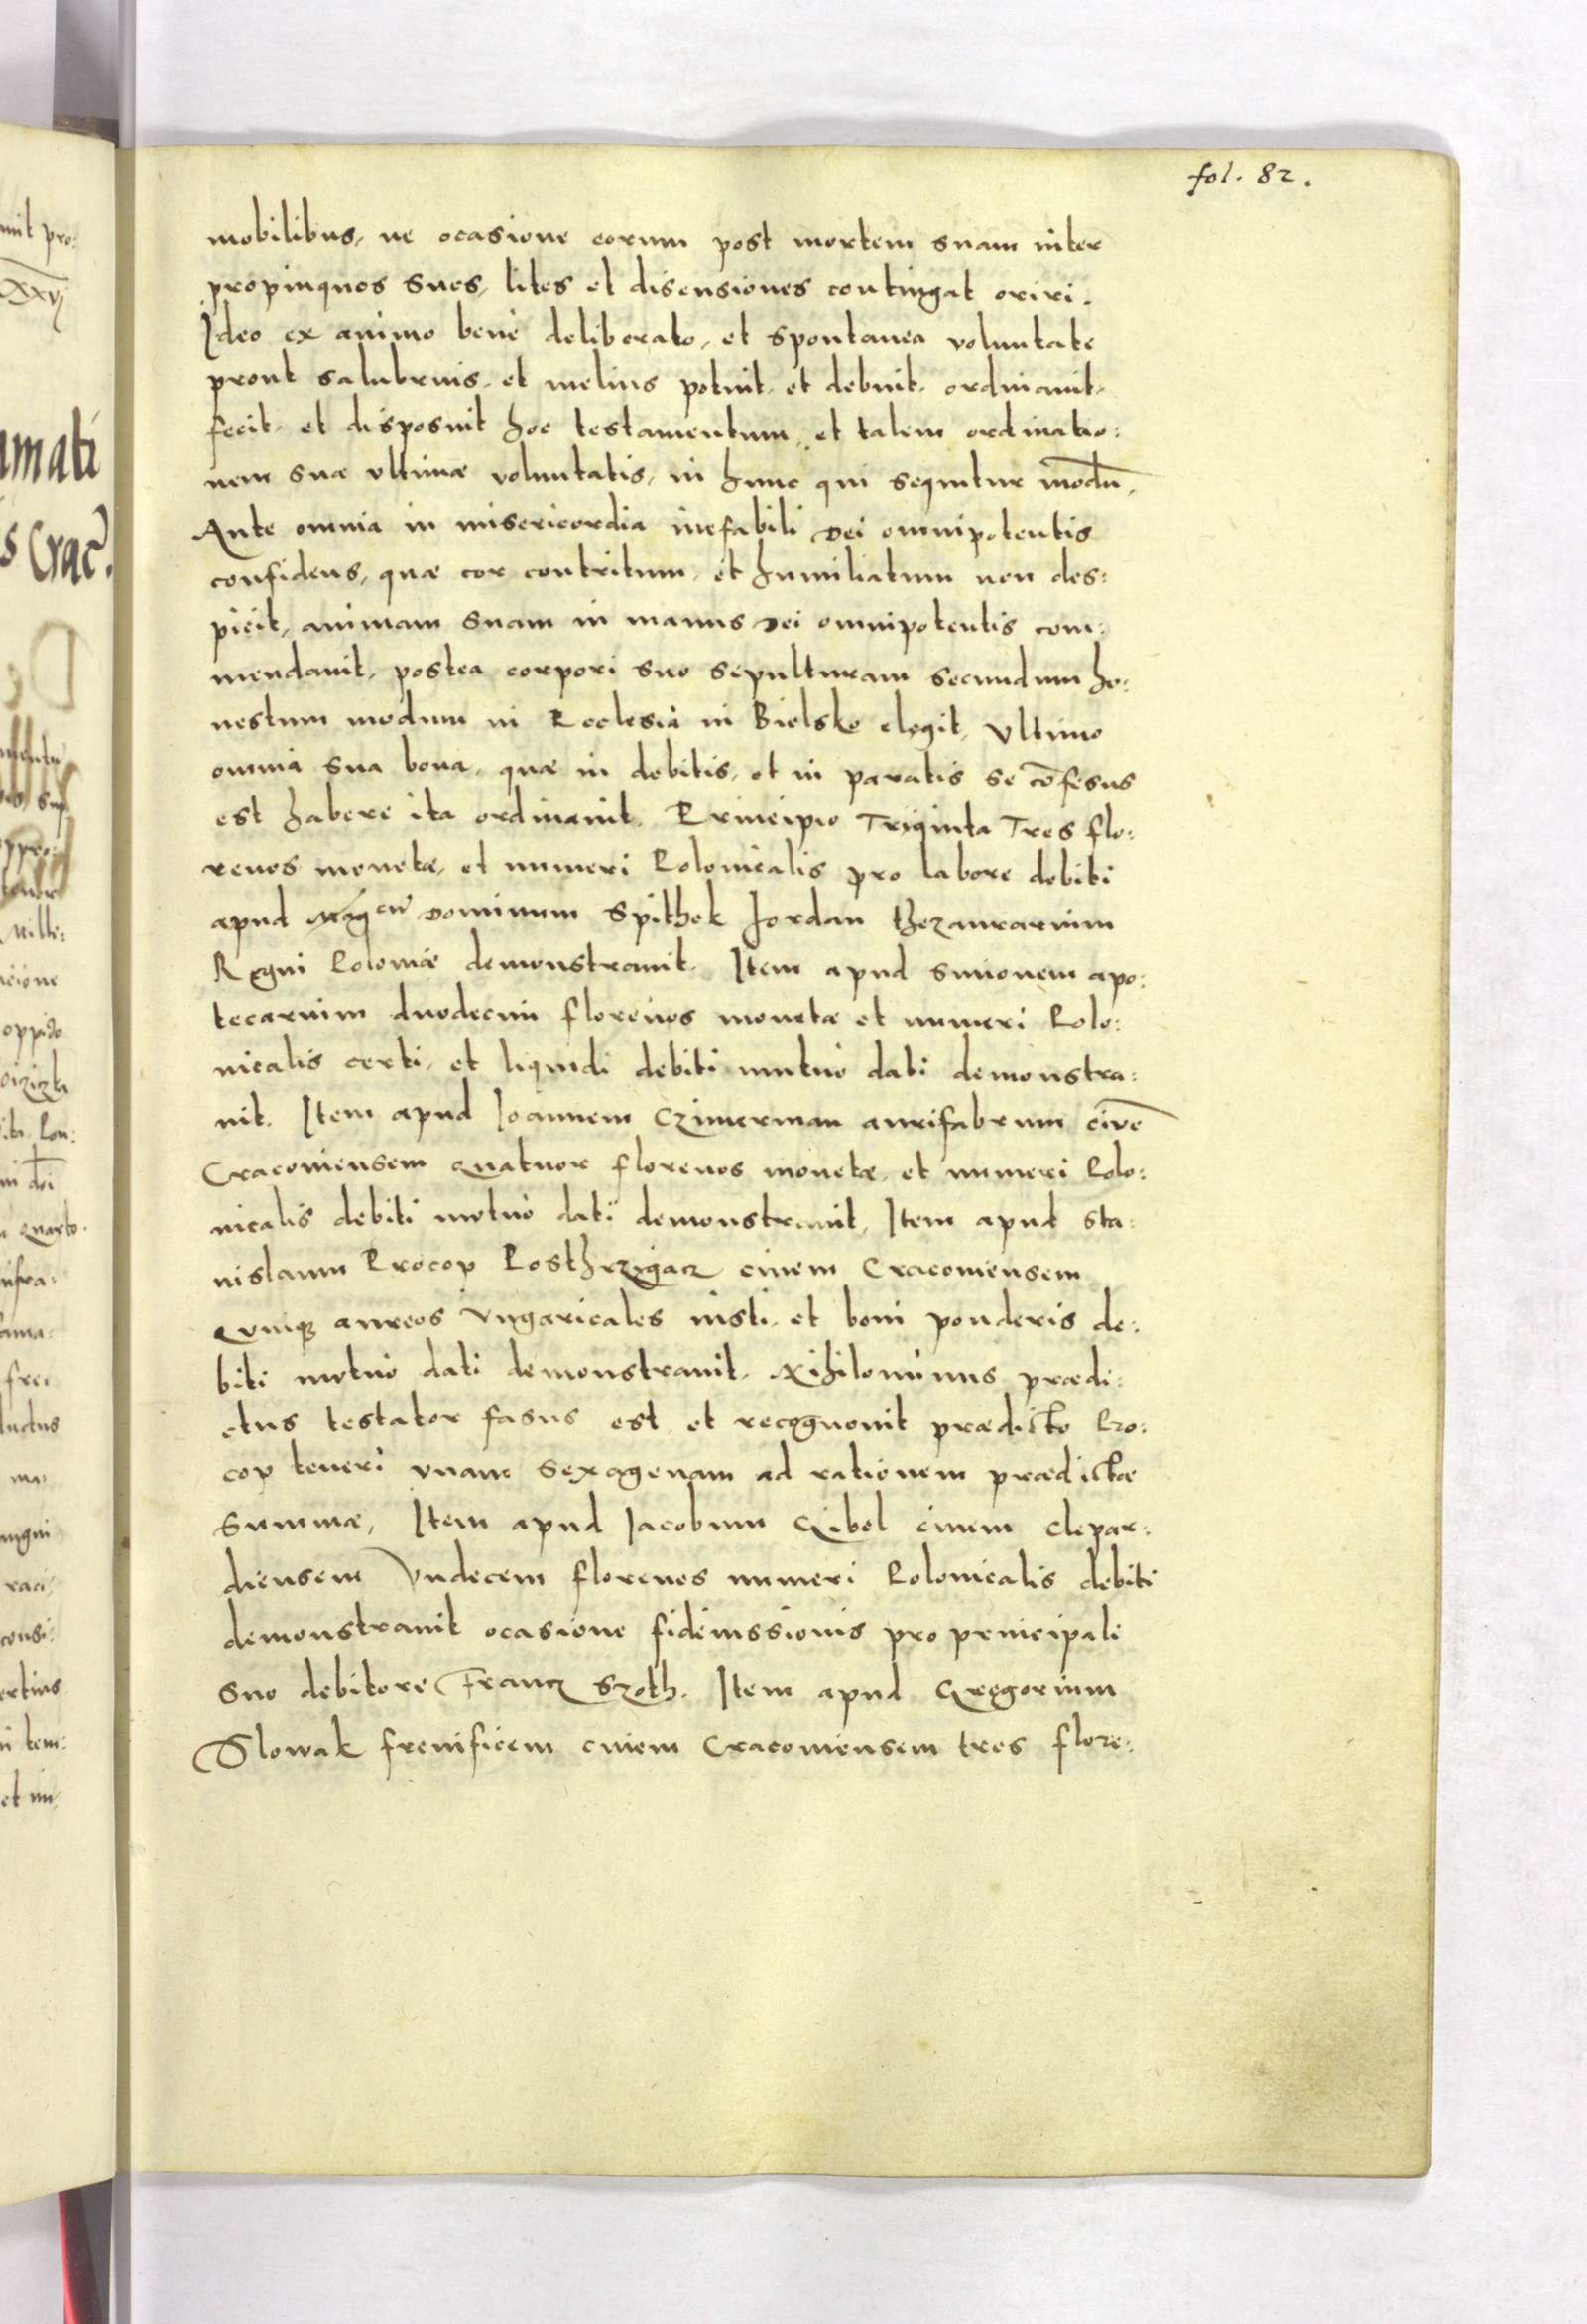 fol. 82.
mobilibus, ne ocasione eorum post mortem suam inter
propinquos suos, lites et disensiones contingat oriri.
Ideo ex animo bene deliberato, et spontanea voluntate
prout salubrius, et melius potuit, et debuit, ordinauit,
fecit, et disposuit hoc testamentum, et talem ordinatio:
nem suæ vltimæ voluntatis, in hunc qui sequitur modū,
Ante omnia in misericordia inefabili Dei omnipotentis
confidens, quæ cor contritum, et humiliatum non des:
picit, animam suam in manus Dei omnipotentis com:
mendauit, postea corpori suo sepulturam secundum ho:
nestum modum in Ecclesia in Bielsko elegit, Vltimo
omnia sua bona, quæ in debitis, et in paratis se cōfesus
est habere ita ordinauit. Principio Triginta Tres flo:
renos monetæ, et numeri Polonicalis pro labore debiti
apud Mag̃cũ Dominum Spithek Jordan thezaurarium
Regni Poloniæ demonstrauit. Item apud Simonem apo:
tecarium duodecim florenos monetæ et numeri Polo:
nicalis certi, et liquidi debiti mutuo dati demonstra:
uit. Item apud Joannem Czimerman aurifabrum ciuē
Cracouiensem quatuor florenos monetæ, et numeri Polo:
nicalis debiti mutuo dati demonstrauit, Item apud Sta:
nislaum Procop Posthrzigacz ciuem Cracouiensem
quinqꝫ aureos Vngaricales iusti, et boni ponderis de:
biti mutuo dati demonstrauit. Nihilominus prædi:
ctus testator fasus est, et recognouit prædicto Pro:
cop teneri vnam sexagenam ad rationem prædictæ
summæ, Item apud Jacobum Gibel ciuem Clepar:
diensem Vndecem florenos numeri Polonicalis debiti
demonstrauit ocasione fideiussionis pro principali
suo debitore Francz Szoth. Item apud Gregorium
Slowak frenificem ciuem Cracouiensem tres flore: